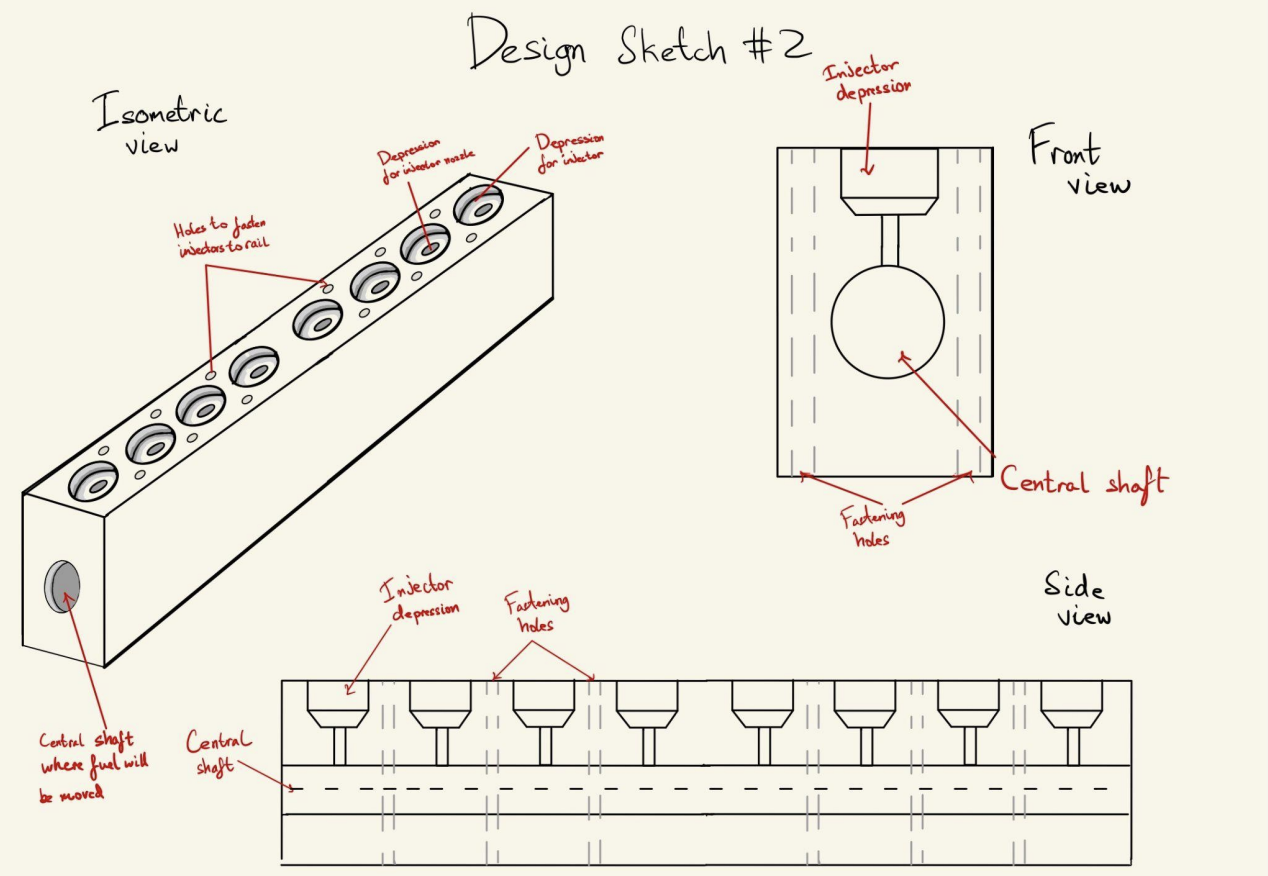 Design Sketch #2
Isometric
view
Depression
for injector nozzle
Depression
for injector
Holes to fasten
injectors to rail
Central shaft
where fuel will
be moved
Injector
depression
Front
view
Central shaft
Fastening
holes
Side
view
Injector
depression
Fastening
holes
Central
shaft